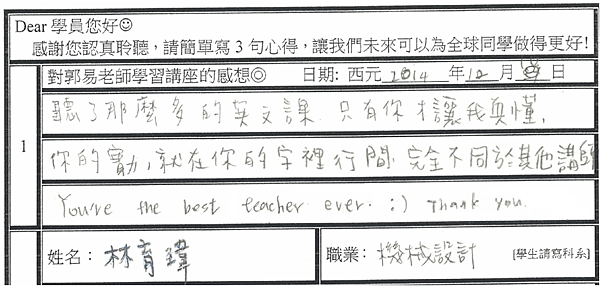 Dear 學員您好☺
感謝您認真聆聽，請簡單寫 3 句心得，讓我們未來可以為全球同學做得更好!
對郭易老師學習講座的感想◎ 日期: 西元 2014 年 12 月 日
聽了那麼多的英文課，只有你才讓我真懂，
1
你的實力，就在你的字裡行間，完全不同於其他講師
You're the best teacher ever. :) Thank you.
姓名： 林育瑋 職業： 機械設計 [學生請寫科系]